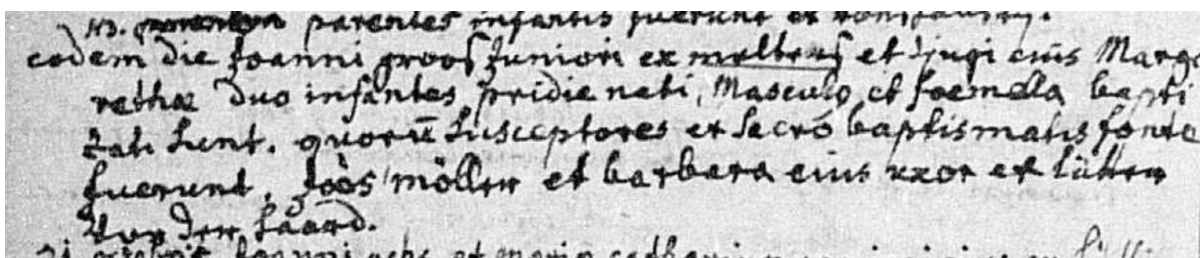 NB. parentes infantis fuerunt et
eodem die Joanni groos Juniori ex meltens et cjugi eius Marga
rethae duo infantes pridie nati, Masculo et foemella bapti
zati sunt. quorū susceptores ex sacro baptismatis fonte
fuerunt, Joos möller et barbara eius uxor et
von der Laard.
21 octobris Joanni et maria catharina